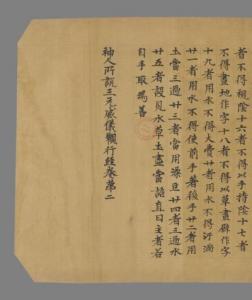 者不得視陰十六者不得以手持陰十七者
不得畫地作字十八者不得以草畫廦作字
十九者用水不得大費廿者用水不得汙湔
廿一者用水不得使前手著後手廿二者用
土當三過廿三者當用澡豆廿四者三過水
廿五者設見水草土盡當語直日主者若
自手取爲善
神人所說三元威儀觀行經卷第二